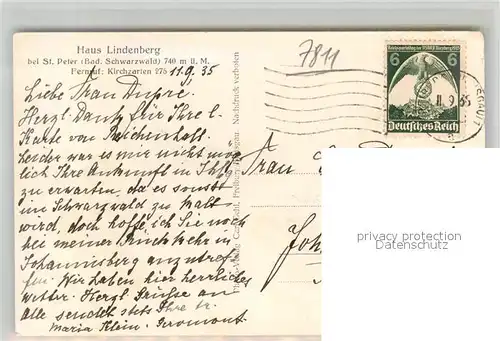 Haus Lindenberg
bei St. Peter (Bad. Schwarzwald) 740 m ü. M.
Fernruf: Kirchzarten 276
11.9.35
7811
Liebe Frau Dupré.
Herzl. Dank für Ihre l.
Karte von Reichenhall.
Leider war es mir nicht mög
lich Ihre Ankunft in
zu erwarten, da es sonst
im Schwarzwald zu kalt
wird, doch hoffe ich Sie noch
bei meiner Rückkehr in
Johannisberg anzutref
fen. Wir haben hier herrliches
Wetter. Herzl. Grüsse an
alle sendet stets Ihre tr.
Maria Klein.
Nachdruck verboten
6 6
Deutsches Reich
11.9.35
Frau
Joh
privacy protection
Datenschutz